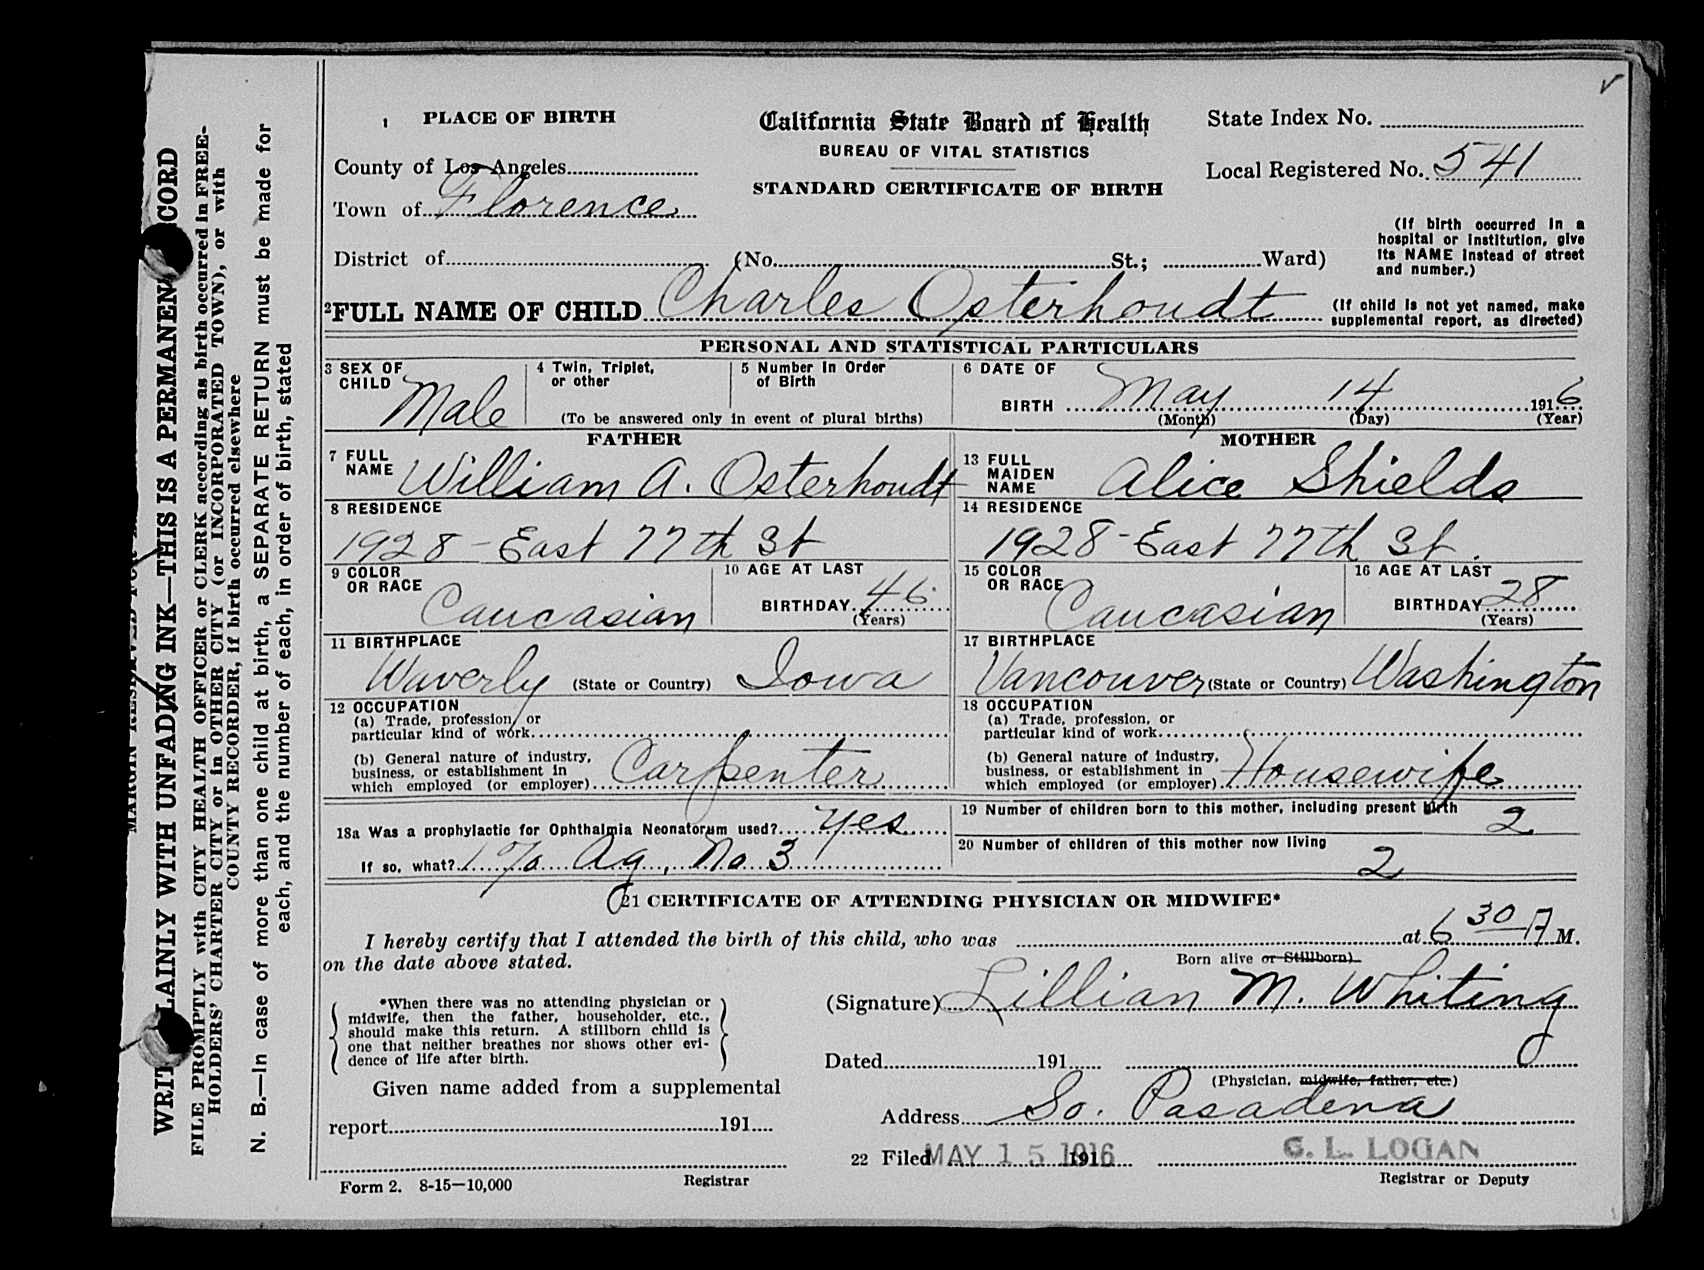 WRITE PLAINLY WITH UNFADING INK—THIS IS A PERMANENT RECORD
FILE PROMPTLY with CITY HEALTH OFFICER or CLERK according as birth occurred in FREE-
HOLDERS' CHARTER CITY or in OTHER CITY (or INCORPORATED TOWN), or with
COUNTY RECORDER, if birth occurred elsewhere
N. B.—In case of more than one child at birth, a SEPARATE RETURN must be made for
each, and the number of each, in order of birth, stated
1 PLACE OF BIRTH
California State Board of Health
State Index No.
BUREAU OF VITAL STATISTICS
County of Los Angeles
Local Registered No. 541
STANDARD CERTIFICATE OF BIRTH
Town of Florence
(If birth occurred in a
hospital or institution, give
its NAME instead of street
and number.)
District of (No. St.; Ward)
2 FULL NAME OF CHILD Charles Osterhoudt
(If child is not yet named, make
supplemental report, as directed)
PERSONAL AND STATISTICAL PARTICULARS
3 SEX OF
CHILD Male
4 Twin, Triplet,
or other
5 Number in Order
of Birth
(To be answered only in event of plural births)
6 DATE OF
BIRTH May 14 1916
(Month) (Day) (Year)
FATHER
7 FULL
NAME William A. Osterhoudt
8 RESIDENCE
1928 - East 77th St
9 COLOR
OR RACE Caucasian
10 AGE AT LAST
BIRTHDAY 46
(Years)
11 BIRTHPLACE
Waverly (State or Country) Iowa
12 OCCUPATION
(a) Trade, profession, or
particular kind of work
(b) General nature of industry,
business, or establishment in
which employed (or employer) Carpenter
MOTHER
13 FULL
MAIDEN
NAME Alice Shields
14 RESIDENCE
1928 - East 77th St.
15 COLOR
OR RACE Caucasian
16 AGE AT LAST
BIRTHDAY 28
(Years)
17 BIRTHPLACE
Vancouver (State or Country) Washington
18 OCCUPATION
(a) Trade, profession, or
particular kind of work
(b) General nature of industry,
business, or establishment in
which employed (or employer) Housewife
18a Was a prophylactic for Ophthalmia Neonatorum used? Yes
If so, what? 1% Ag. No 3
19 Number of children born to this mother, including present birth 2
20 Number of children of this mother now living 2
21 CERTIFICATE OF ATTENDING PHYSICIAN OR MIDWIFE*
I hereby certify that I attended the birth of this child, who was at 6 30 A M.
Born alive or Stillborn)
on the date above stated.
*When there was no attending physician or
midwife, then the father, householder, etc.,
should make this return. A stillborn child is
one that neither breathes nor shows other evi-
dence of life after birth.
(Signature) Lillian M. Whiting
Dated 191
(Physician, midwife, father, etc.)
Given name added from a supplemental
report 191
Address So. Pasadena
22 Filed MAY 15 1916 191
G. L. LOGAN
Registrar
Registrar or Deputy
Form 2. 8-15—10,000